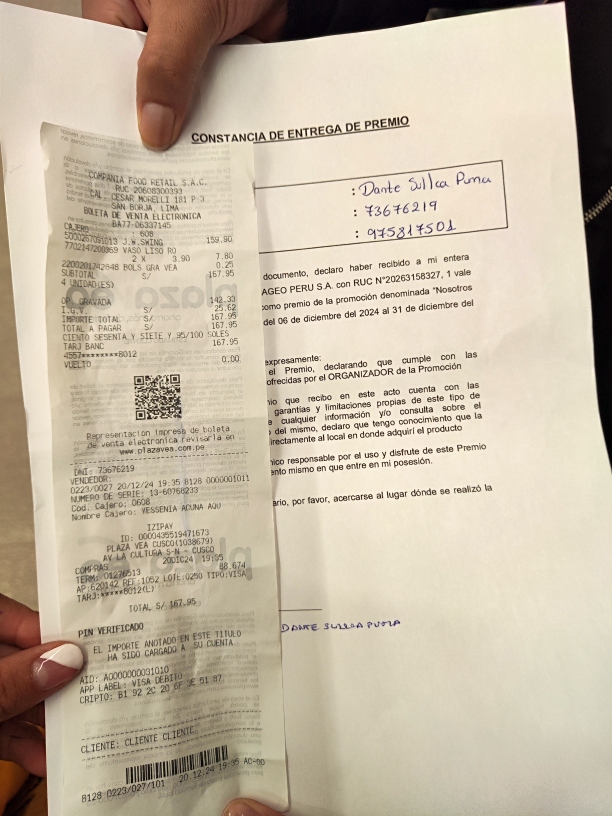 CONSTANCIA DE ENTREGA DE PREMIO
: Dante Sullca Puma
: 73676219
: 975817501
documento, declaro haber recibido a mi entera
AGEO PERU S.A. con RUC N°20263158327, 1 vale
como premio de la promoción denominada "Nosotros
del 06 de diciembre del 2024 al 31 de diciembre del
expresamente:
el Premio, declarando que cumple con las
ofrecidas por el ORGANIZADOR de la Promoción
nio que recibo en este acto cuenta con las
garantías y limitaciones propias de este tipo de
e cualquier información y/o consulta sobre el
o del mismo, declaro que tengo conocimiento que la
directamente al local en donde adquirí el producto
nico responsable por el uso y disfrute de este Premio
ento mismo en que entre en mi posesión.
ario, por favor, acercarse al lugar dónde se realizó la
DANTE SULLCA PUMA
COMPANIA FOOD RETAIL S.A.C.
RUC 20608300393
CAL. CESAR MORELLI 181 P-3
SAN BORJA, LIMA
BOLETA DE VENTA ELECTRONICA
BA77-06337145
CAJERO : 608
5000267091013 J.W.SWING 159.90
7702147200369 VASO LISO RO
2 X 3.90 7.80
2200201742848 BOLS GRA VEA 0.25
SUBTOTAL S/ 167.95
4 UNIDAD(ES)
OP. GRAVADA 142.33
I.G.V. S/ 25.62
IMPORTE TOTAL S/ 167.95
TOTAL A PAGAR S/ 167.95
CIENTO SESENTA Y SIETE Y 95/100 SOLES
TARJ BANC 167.95
4557********8012
VUELTO 0.00
Representación impresa de boleta
de venta electronica revisarla en
www.plazavea.com.pe
DNI: 73676219
VENDEDOR:
0223/0027 20/12/24 19:35 8128 0000001011
NUMERO DE SERIE: 13-60768233
Cod. Cajero: 0608
Nombre Cajero: YESSENIA ACUNA AQU
IZIPAY
ID: 0000435519471673
PLAZA VEA CUSCO(1038679)
AV LA CULTURA S-N - CUSCO
COMPRAS 20DIC24 19:35
TERM: 01276513 88.674
AP:620142 REF:1052 LOTE:0250 TIPO:VISA
TARJ:*****8012(L)
TOTAL S/ 167.95
PIN VERIFICADO
EL IMPORTE ANOTADO EN ESTE TITULO
HA SIDO CARGADO A SU CUENTA
AID: A0000000031010
APP LABEL: VISA DEBITO
CRIPTO: B1 92 2C 20 6F 3E 51 87
CLIENTE: CLIENTE CLIENTE
8128 0223/027/101 20.12.24 19:35 AC-00